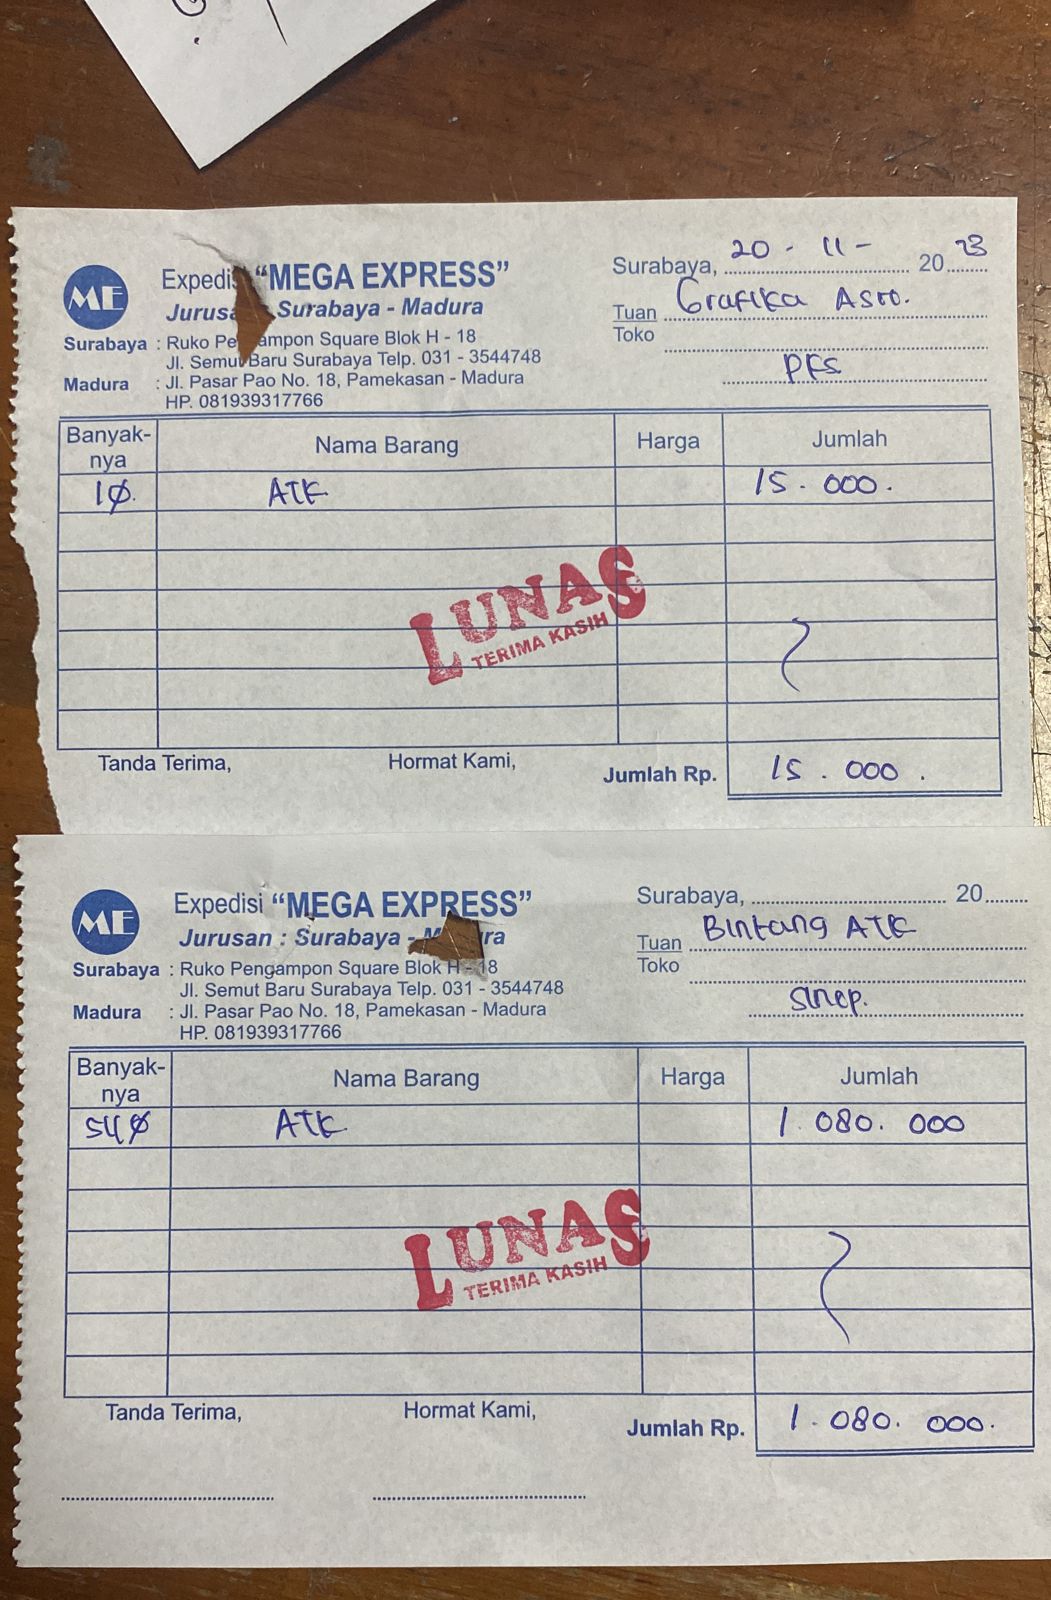 Expedisi "MEGA EXPRESS"
Jurusan : Surabaya - Madura
Surabaya : Ruko Pengampon Square Blok H - 18
Jl. Semut Baru Surabaya Telp. 031 - 3544748
Madura : Jl. Pasar Pao No. 18, Pamekasan - Madura
HP. 081939317766
Surabaya, 20 - 11 - 20 23
Tuan Grafika Asro.
Toko
PFS
Banyak-
nya
Nama Barang Harga Jumlah
10 ATK 15.000.
LUNAS
TERIMA KASIH
Tanda Terima, Hormat Kami, Jumlah Rp. 15.000.
ME
Expedisi "MEGA EXPRESS"
Jurusan : Surabaya - Madura
Surabaya : Ruko Pengampon Square Blok H - 18
Jl. Semut Baru Surabaya Telp. 031 - 3544748
Madura : Jl. Pasar Pao No. 18, Pamekasan - Madura
HP. 081939317766
Surabaya, 20
Tuan Bintang ATK
Toko
Banyak-
nya
Nama Barang Harga Jumlah
540 ATK 1.080.000
LUNAS
TERIMA KASIH
Tanda Terima, Hormat Kami, Jumlah Rp. 1.080.000.